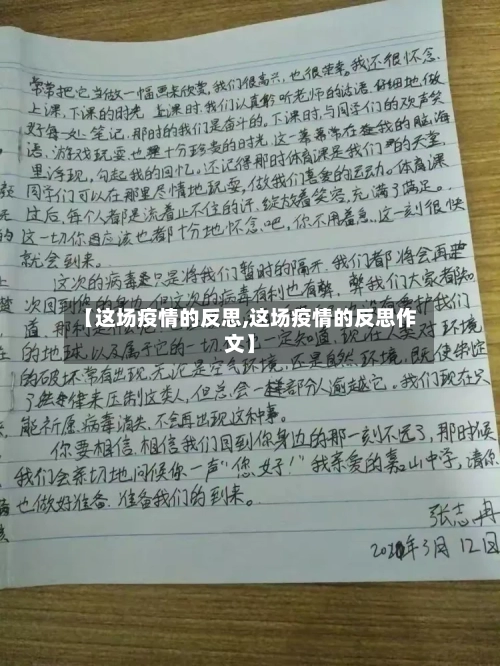 常常把它当做一幅画来欣赏,我们很高兴,也很荣幸。我还很怀念
上课,下课的时光 上课时 我们认真聆听老师的话语 仔细地做
好每一处笔记,那时的我们是奋斗的,下课时,与同学们的欢声笑
语,游戏玩耍 也是十分珍贵的时光 这一幕常常在我的脑海
里浮现,勾起我的回忆,还记得那时体育课是我们的天堂,
同学们可以在那里尽情地玩耍,做我们喜爱的运动。体育课
过后,每个人都是流着止不住的汗,绽放着笑容,充满了满足。
这一切你因应该也都十分地怀念吧,你不用着急,这一刻很快
就会到来。
这次的病毒只是将我们暂时的隔开,我们都将会再
次回到你的身边,但这次的病毒有利也有弊,弊我们大家都知
道,那利是
【这场疫情的反思,这场疫情的反思作
文】
的地球,以及属于它的一切 一定知道,现在人类对环境
的破坏常有出现,无论是空气环境,还是自然环境,既使制定
了法律来压制这类人,但总会一部分人逾越它。我们现在只
能祈愿病毒消失,不会再出现这种事。
你要相信,相信我们回到你身边的那一刻不远了,那时候
我们会亲切地问候你一声"您好!"我亲爱的嘉山中学,请你
也做好准备,准备我们的到来。
张志冉
3月12日